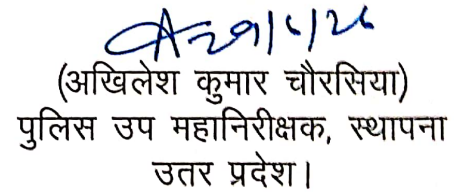 29/6/26
(अखिलेश कुमार चौरसिया)
पुलिस उप महानिरीक्षक, स्थापना
उतर प्रदेश।